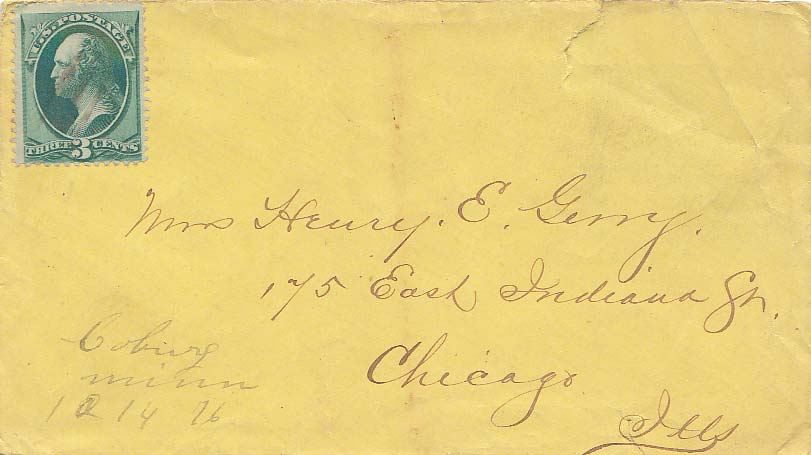 U.S. POSTAGE
THREE 3 CENTS
Mrs Henry. E. Gerry.
175 East Indiana St.
Chicago
Ills
Coburg
minn
12 14 76